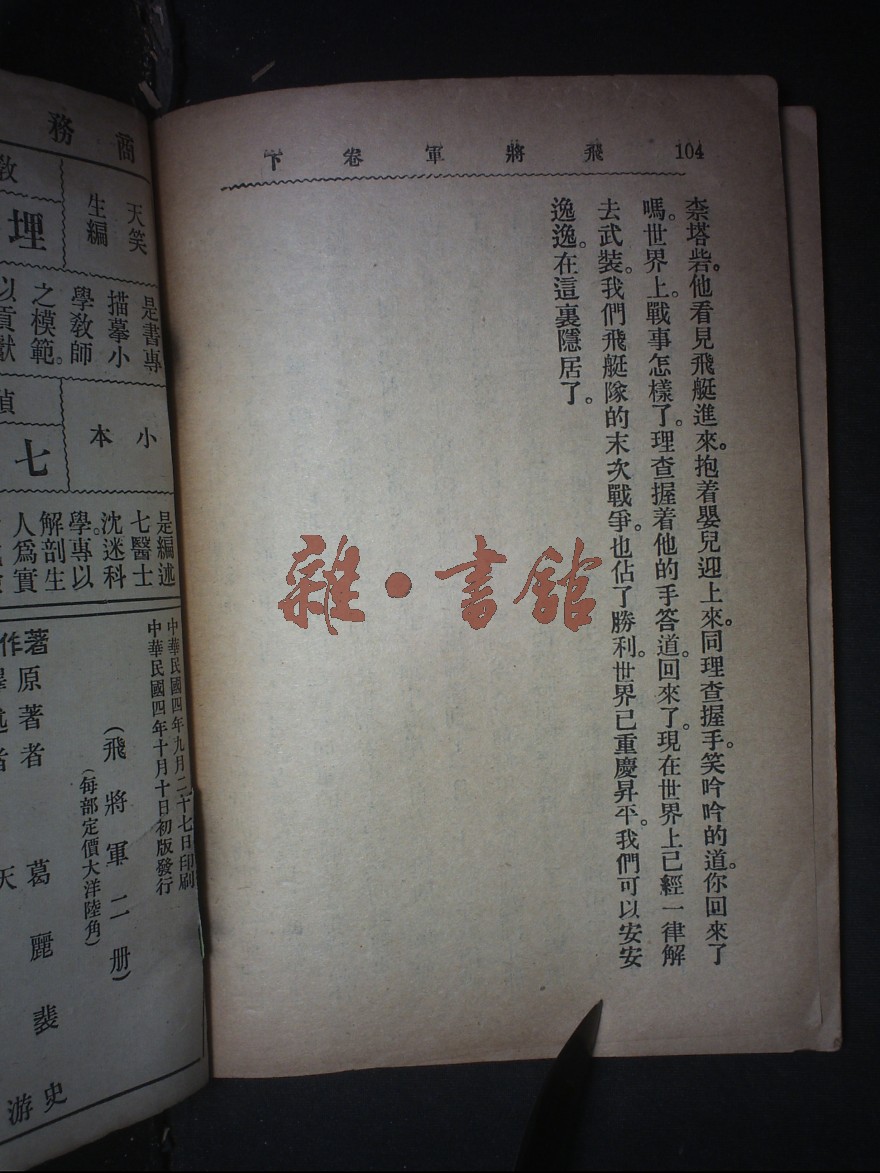 104
飛將軍卷下
柰塔砦。他看見飛艇進來。抱着嬰兒迎上來。同理查握手。笑吟吟的道。你回來了
嗎。世界上。戰事怎樣了。理查握着他的手答道。回來了。現在世界上已經一律解
去武裝。我們飛艇隊的末次戰爭。也佔了勝利。世界已重慶昇平。我們可以安安
逸逸。在這裏隱居了。
雜·書館
商務
天笑
生編
是書專
描摹小
學敎師
之模範。
以貢獻
敎
埋
小
本
偵
七
是編述
七醫士
沈迷科
學。專以
解剖生
人爲實
中華民國四年九月二十七日印刷
中華民國四年十月十日初版發行
(飛將軍二册)
(每部定價大洋陸角)
著作
原著者 葛麗裴史
譯述者 天游